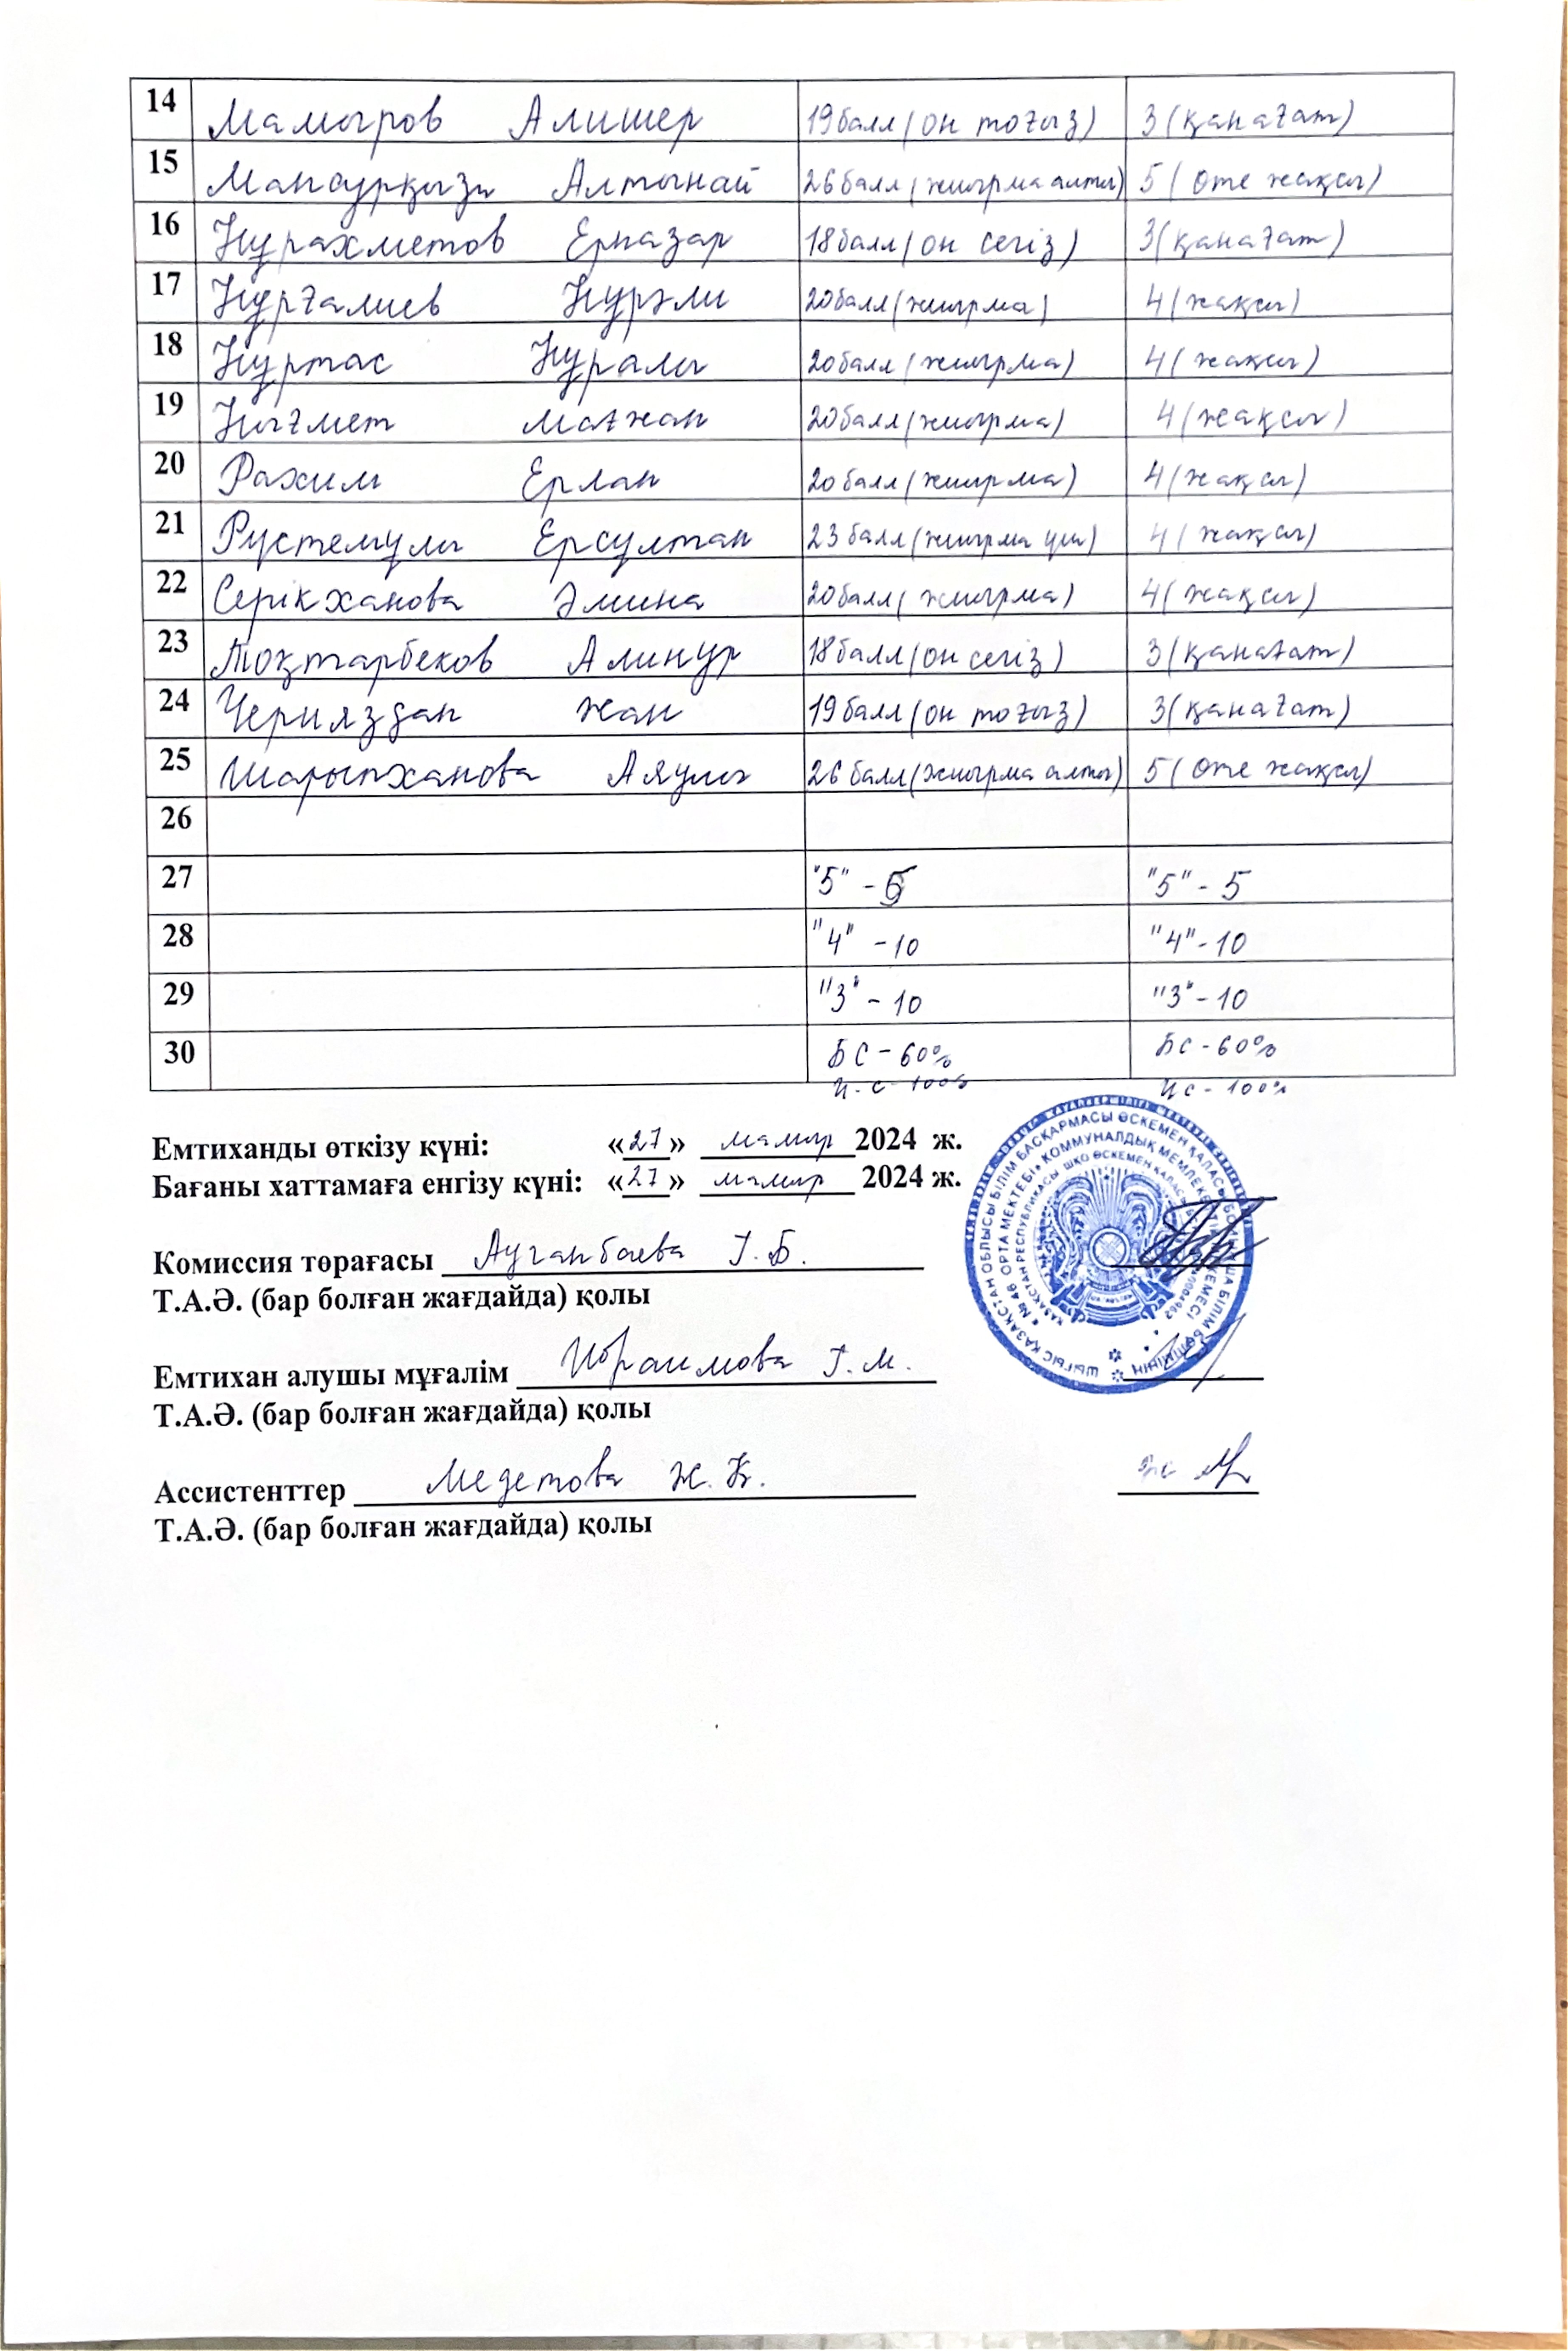 14 Мамыров Алишер 19 балл (он тоғыз) 3 (қанағат)
15 Мансурқызы Алтынай 26 балл (жиырма алты) 5 (өте жақсы)
16 Нұрахметов Ерназар 18 балл (он сегіз) 3 (қанағат)
17 Нұрғалиев Нұрәли 20 балл (жиырма) 4 (жақсы)
18 Нұртас Нұралы 20 балл (жиырма) 4 (жақсы)
19 Нығмет Мағжан 20 балл (жиырма) 4 (жақсы)
20 Рахим Ерлан 20 балл (жиырма) 4 (жақсы)
21 Рүстемұлы Ерсұлтан 23 балл (жиырма үш) 4 (жақсы)
22 Серікханова Әмина 20 балл (жиырма) 4 (жақсы)
23 Тоқтарбеков Алинұр 18 балл (он сегіз) 3 (қанағат)
24 Чернияздан Жан 19 балл (он тоғыз) 3 (қанағат)
25 Шарыпханова Аяулы 26 балл (жиырма алты) 5 (өте жақсы)
26
27 "5" - 5 "5" - 5
28 "4" - 10 "4" - 10
29 "3" - 10 "3" - 10
30 БС - 60% БС - 60%
Ү.С - 100% ҮС - 100%
Емтиханды өткізу күні: «27» мамыр 2024 ж.
Бағаны хаттамаға енгізу күні: «27» мамыр 2024 ж.
Комиссия төрағасы Ауганбаева Г.Б.
Т.А.Ә. (бар болған жағдайда) қолы
Емтихан алушы мұғалім Ибраимова Г.М.
Т.А.Ә. (бар болған жағдайда) қолы
Ассистенттер Медетова Ж.Қ.
Т.А.Ә. (бар болған жағдайда) қолы